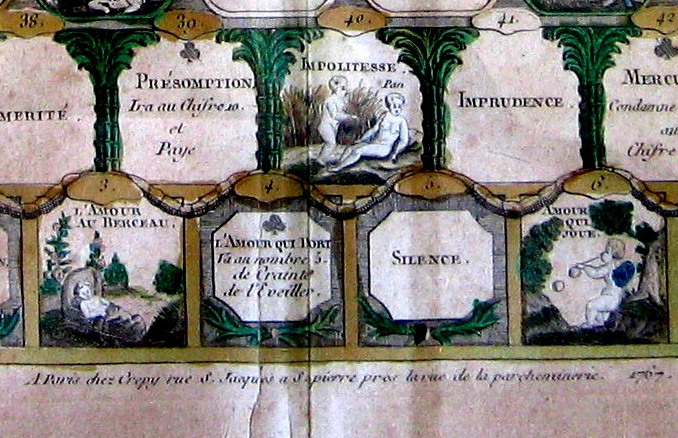 38.
39.
40.
41.
42
MERITÉ.
PRÉSOMPTION
Ira au Chifre 10.
et
Paye
IMPOLITESSE.
Pan
IMPRUDENCE.
MERCU
Condamne
au
Chifre
3.
4.
5.
6.
L'AMOUR
AU BERCEAU.
L'AMOUR QUI DORT
Va au nombre 5.
de Crainte
de l'Eveiller.
SILENCE.
AMOUR
QUI
JOUE.
A Paris chez Crepy rue S. Jaques a S. pierre pres la rue de la parcheminerie. 1767.